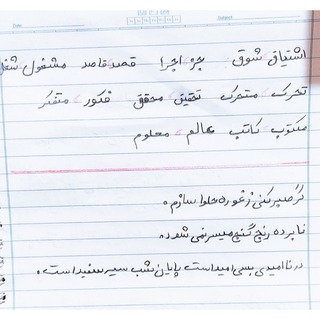 اشتیاق شوق جزء اجزا قصد قاصد مشغول شغل
تحرک متحرک تحقیق محقق فکور متفکر
مکتوب کاتب عالم معلوم
گر صبر کنی ز غوره حلوا سازم.
نابرده رنج گنج میسر نمی شود.
در ناامیدی بسی امید است پایان شب سیه سفید است.